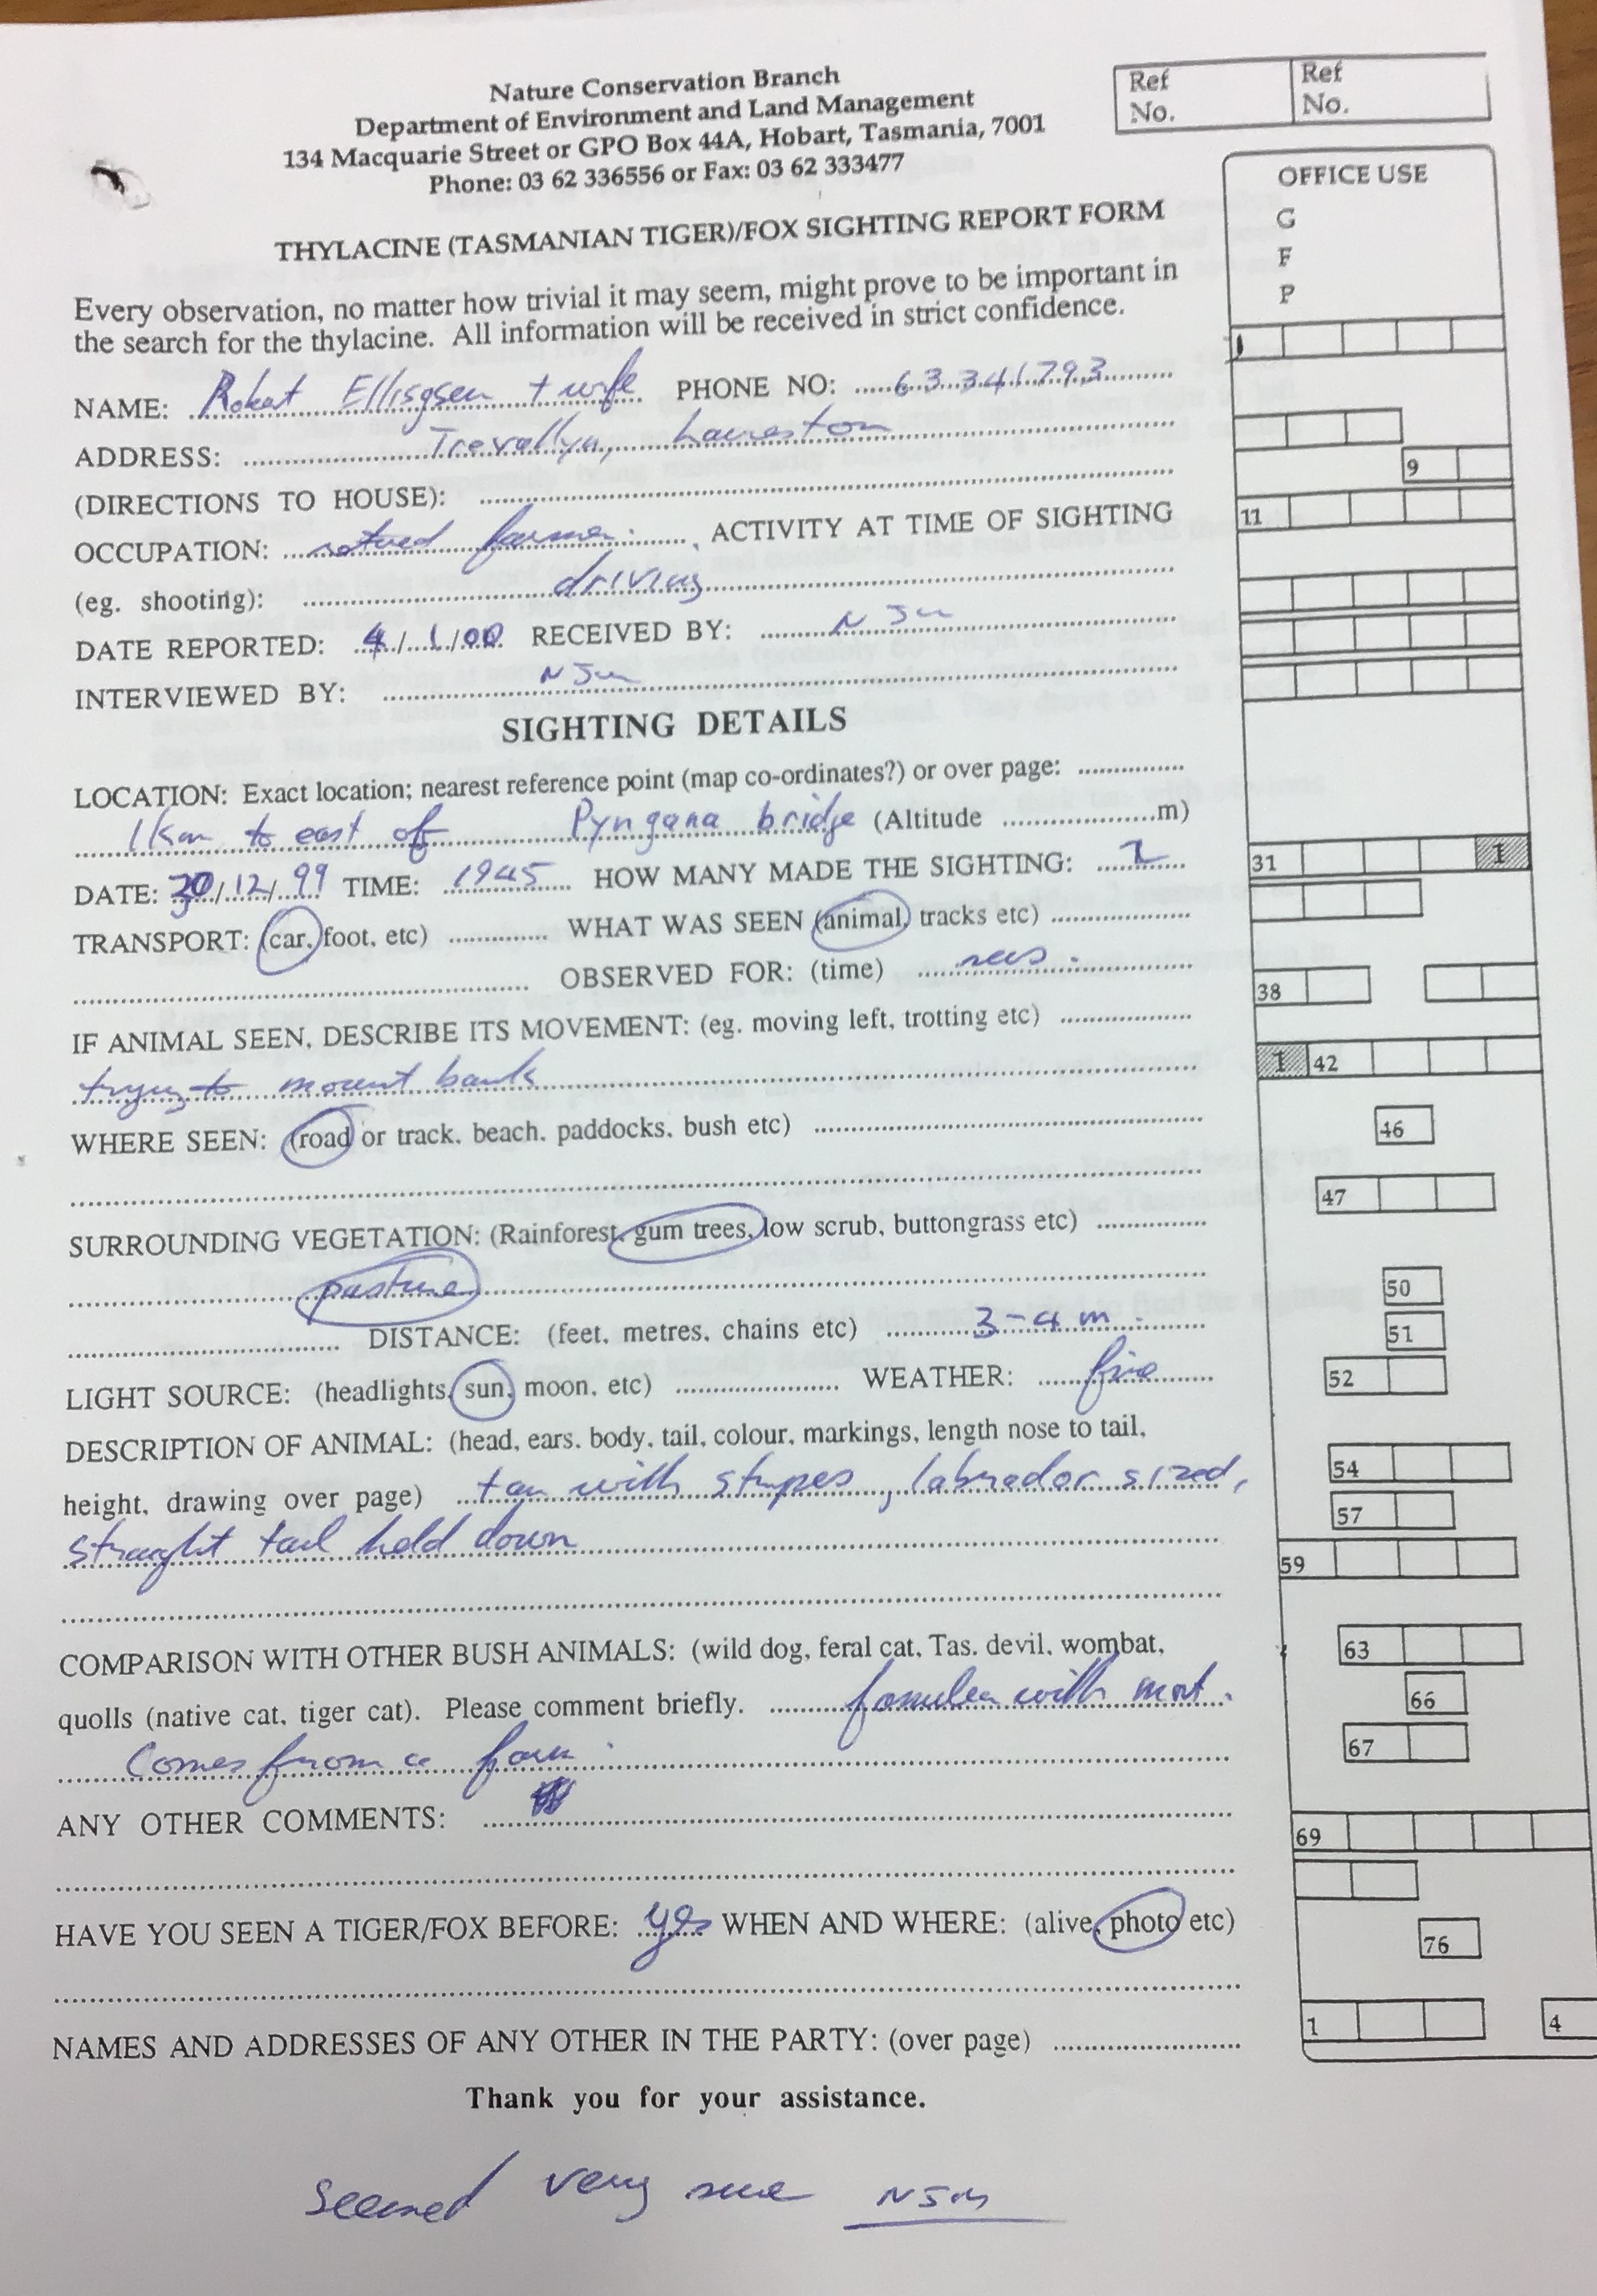 Nature Conservation Branch
Department of Environment and Land Management
134 Macquarie Street or GPO Box 44A, Hobart, Tasmania, 7001
Phone: 03 62 336556 or Fax: 03 62 333477
Ref No. Ref No.
THYLACINE (TASMANIAN TIGER)/FOX SIGHTING REPORT FORM
Every observation, no matter how trivial it may seem, might prove to be important in
the search for the thylacine. All information will be received in strict confidence.
NAME: Robert + wife PHONE NO: 63341793
ADDRESS: Trevallyn,
(DIRECTIONS TO HOUSE):
OCCUPATION: retired farmer. ACTIVITY AT TIME OF SIGHTING
(eg. shooting): driving
DATE REPORTED: 4/1/00 RECEIVED BY:
INTERVIEWED BY:
SIGHTING DETAILS
LOCATION: Exact location; nearest reference point (map co-ordinates?) or over page:
1km to east of Pyngana bridge (Altitude m)
DATE: 30/12/99 TIME: 1945 HOW MANY MADE THE SIGHTING: 2
TRANSPORT: (car, foot, etc) WHAT WAS SEEN (animal, tracks etc)
OBSERVED FOR: (time) secs.
IF ANIMAL SEEN, DESCRIBE ITS MOVEMENT: (eg. moving left, trotting etc)
trying to mount bank
WHERE SEEN: (road or track, beach, paddocks, bush etc)
SURROUNDING VEGETATION: (Rainforest, gum trees, low scrub, buttongrass etc)
pasture
DISTANCE: (feet, metres, chains etc) 3-4 m.
LIGHT SOURCE: (headlights, sun, moon, etc) WEATHER: fine
DESCRIPTION OF ANIMAL: (head, ears, body, tail, colour, markings, length nose to tail,
height, drawing over page) tan with stripes, labrador sized,
straight tail held down
COMPARISON WITH OTHER BUSH ANIMALS: (wild dog, feral cat, Tas. devil, wombat,
quolls (native cat, tiger cat). Please comment briefly. familiar with most.
Comes from a farm.
ANY OTHER COMMENTS:
HAVE YOU SEEN A TIGER/FOX BEFORE: yes WHEN AND WHERE: (alive, photo etc)
NAMES AND ADDRESSES OF ANY OTHER IN THE PARTY: (over page)
Thank you for your assistance.
Seemed very sure NJM
OFFICE USE
G
F
P
1
9
11
31 1
38
1 42
46
47
50
51
52
54
57
59
63
66
67
69
76
1 4